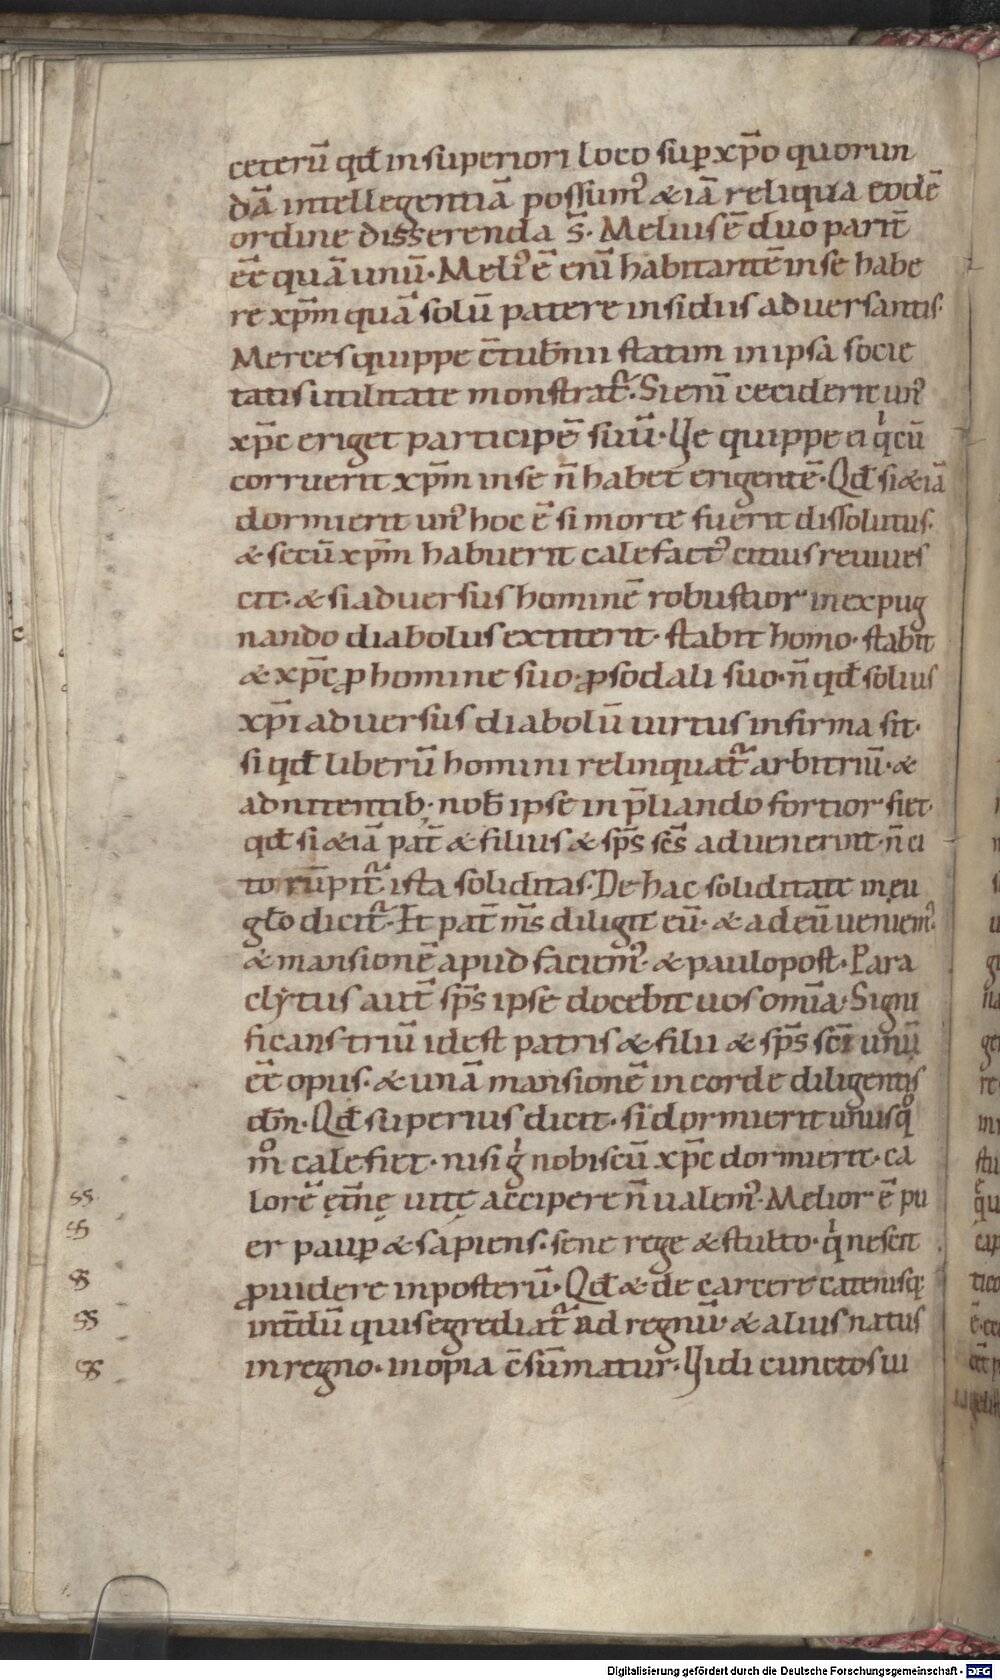 ceterū qđ in superiori loco sup xp̄o quorun
dā intellegentiā possumꝰ & iā reliqua eodē
ordine disserenda s̄. Melius ē duo parit̄
ēē quā unū. Meliꝰ ē enī habitantē in se habe
re xp̄m quā solū patere insidiis adversantis.
Merces quippe c̄tub̄nii statim in ipsa socie
tatis utilitate monstrat᷑. Si enī ceciderit unꝰ
xp̄c eriget participē suū. Ve quippe ei q̇ cū
corruerit xp̄m in se n̄ habet erigentē. Qđ si & iā
dormierit unꝰ hoc ē si morte fuerit dissolutus.
& secū xp̄m habuerit calefactꝰ citius revives
cit. & si adversus hominē robustior in expug
nando diabolus extiterit. stabit homo. stabit
& xp̄c ꝓ homine suo. ꝓ sodali suo. n̄ qđ solius
xp̄i adversus diabolū virtus infirma sit.
si qđ liberū homini relinquat᷑ arbitriū. &
adnitentib; nob̄ ipse in p̄liando fortior fiet.
qđ si & iā pat̄ & filius & sp̄s sc̄s advenerint. n̄ ci
to rūpit᷑ ista soliditas. De hac soliditate in eu
gl̄o dicit᷑. Et pat̄ m̄s diligit eū. & ad eū veniemꝰ.
& mansionē apud faciemꝰ. & paulo post. Para
clytus aut̄ sp̄s ipse docebit vos om̄ia. Signi
ficans triū id est patris & filii & sp̄s sc̄i unū
ēē opus. & unā mansionē in corde diligentis
dm̄. Qđ superius dicit. si dormierit unus qͦ
mͦ calefiet. nisi g̊ nobiscū xp̄c dormierit. ca
lorē ęt̄nę vitę accipere n̄ valemꝰ. Melior ē pu
er paup & sapiens. sene rege & stulto. q̇ nescit
ꝓvidere in posterū. Qđ & de carcere catenisq;
int̄dū quis egrediat᷑ ad regnū. & alius natus
in regno. inopia c̄sūmatur. Vidi cunctos vi
ss
ss
ss
ss
ss
Digitalisierung gefördert durch die Deutsche Forschungsgemeinschaft - DFG